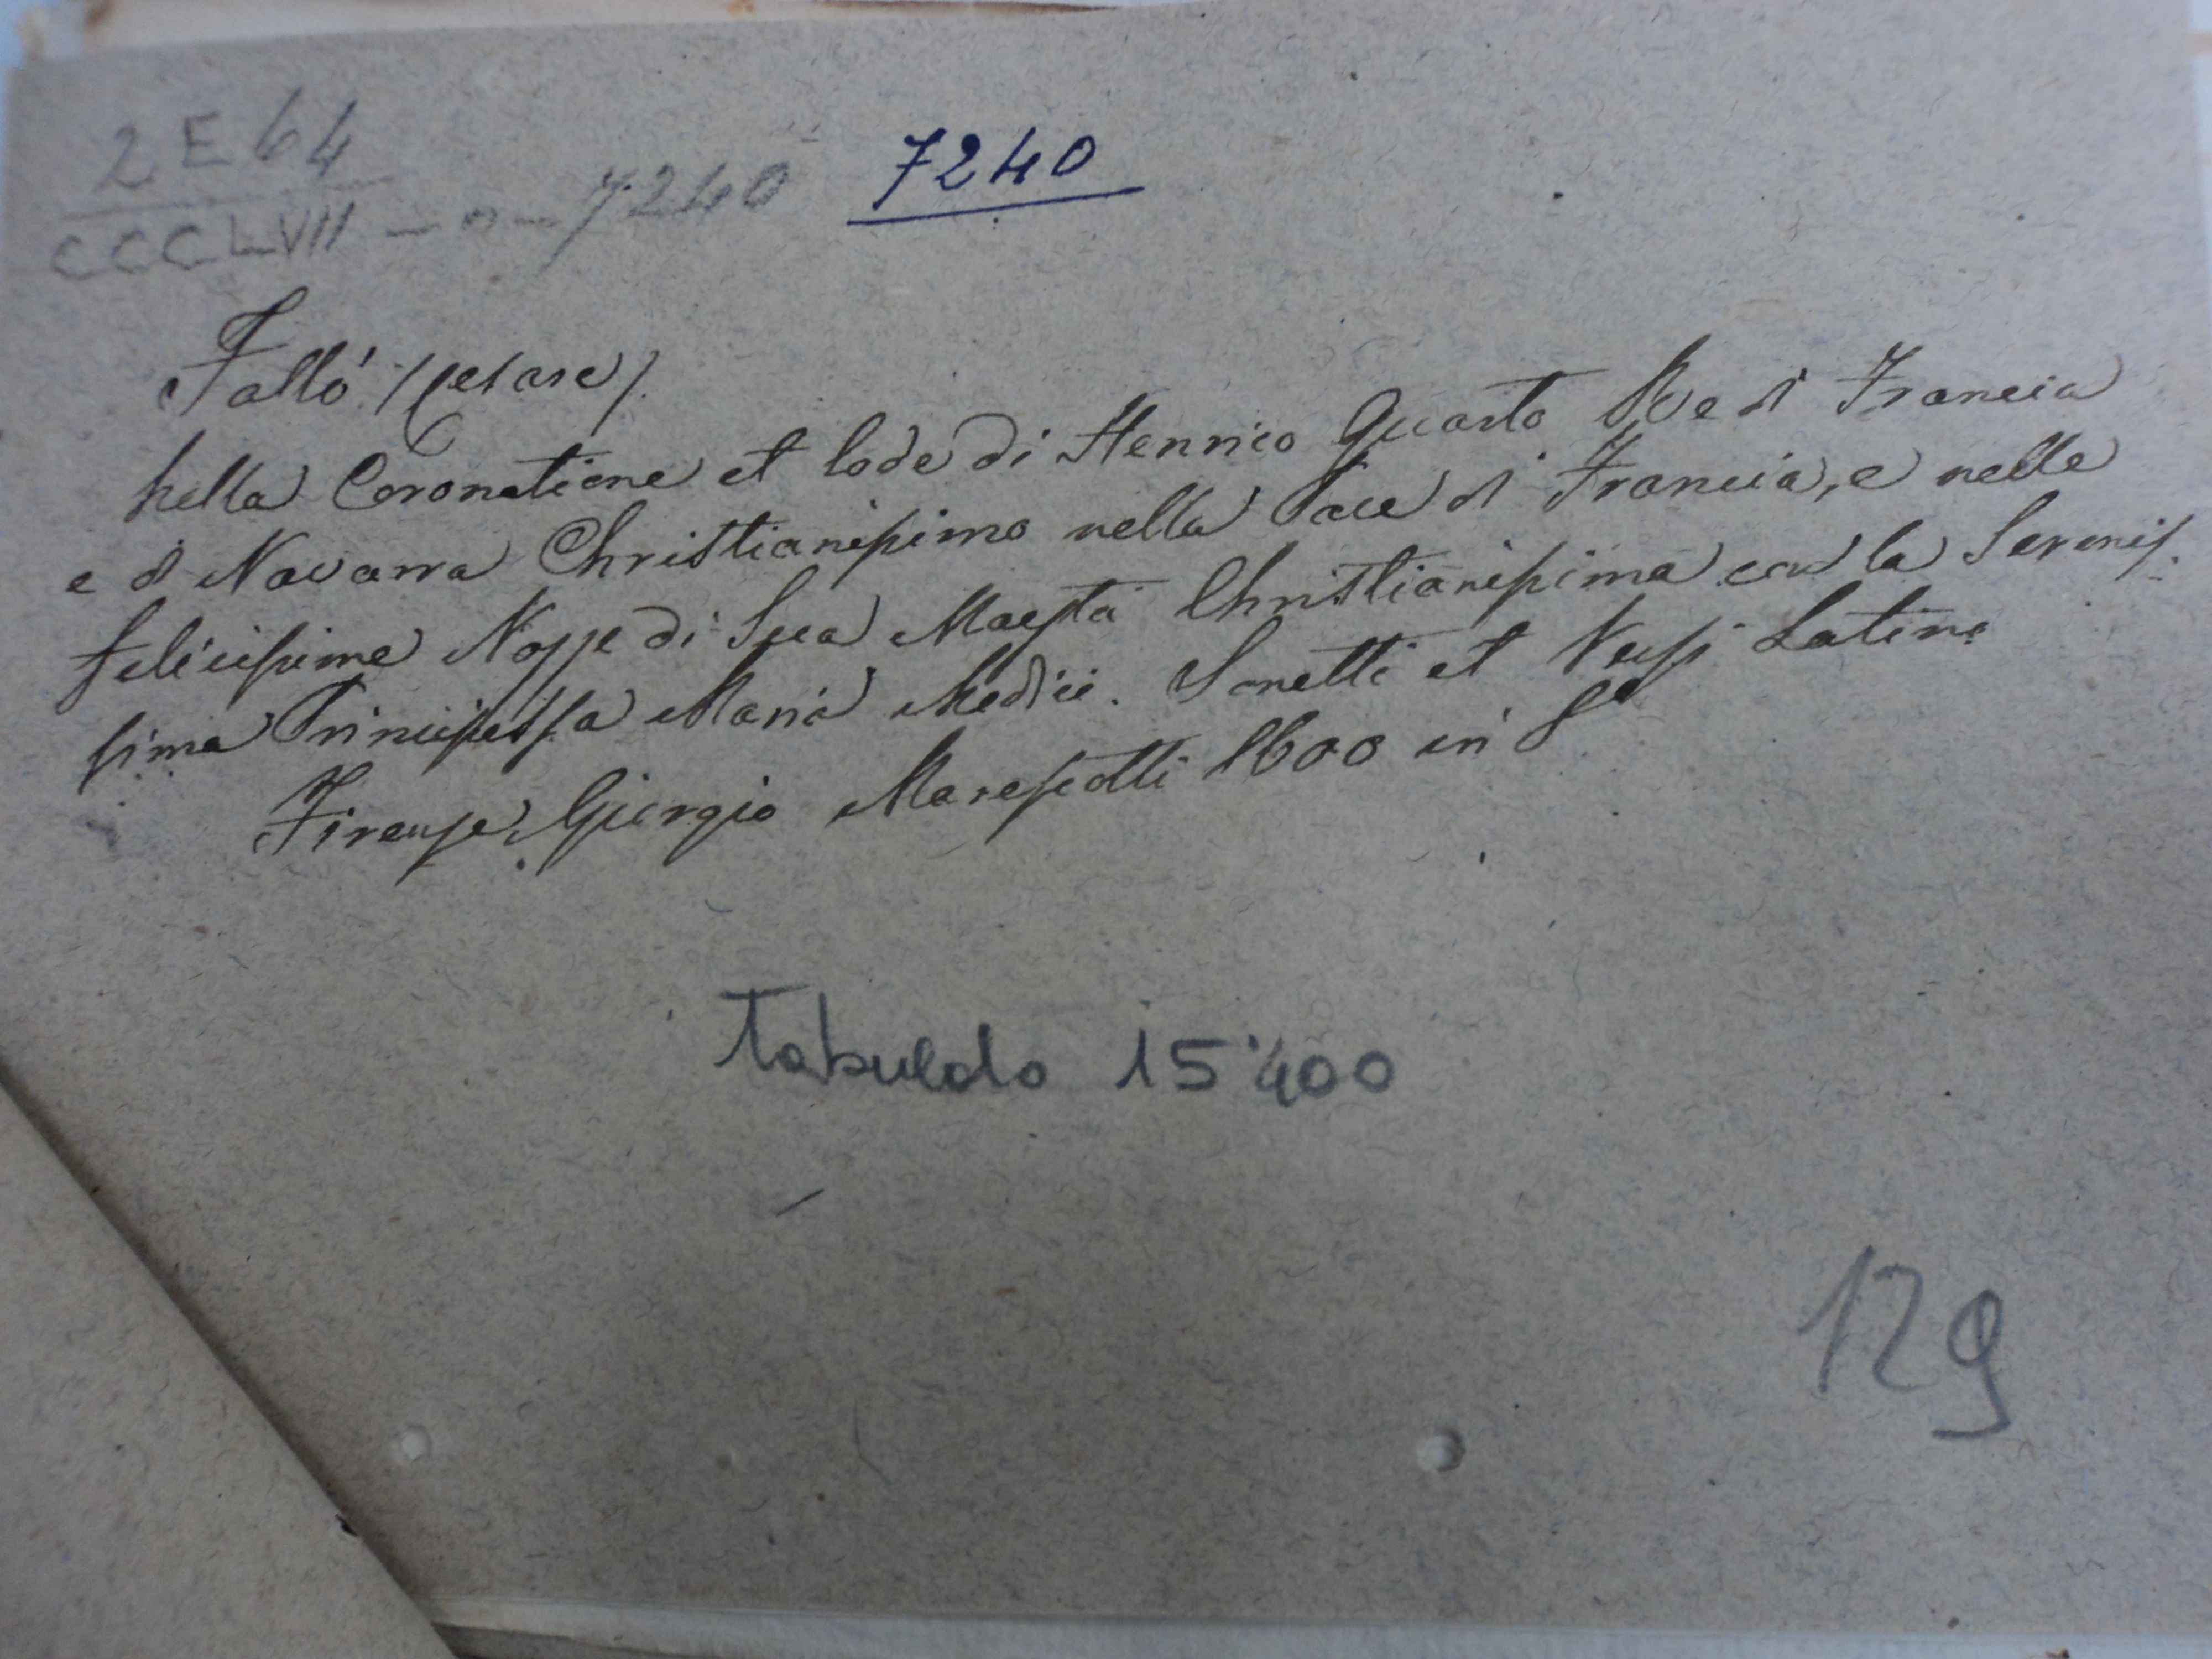 2 E 64
CCCLVII - n - 7240
7240
Falló (Cesare).
Nella Coronatione et lode di Henrico Quarto Re di Francia
e di Navarra Christianissimo nella Pace di Francia, e nelle
felicissime Nozze di Sua Maestà Christianissima con la Serenis-
sima Principessa Maria Medici. Sonetti et Versi Latini
Firenze, Giorgio Marescotti 1600 in 8º
15'400
129